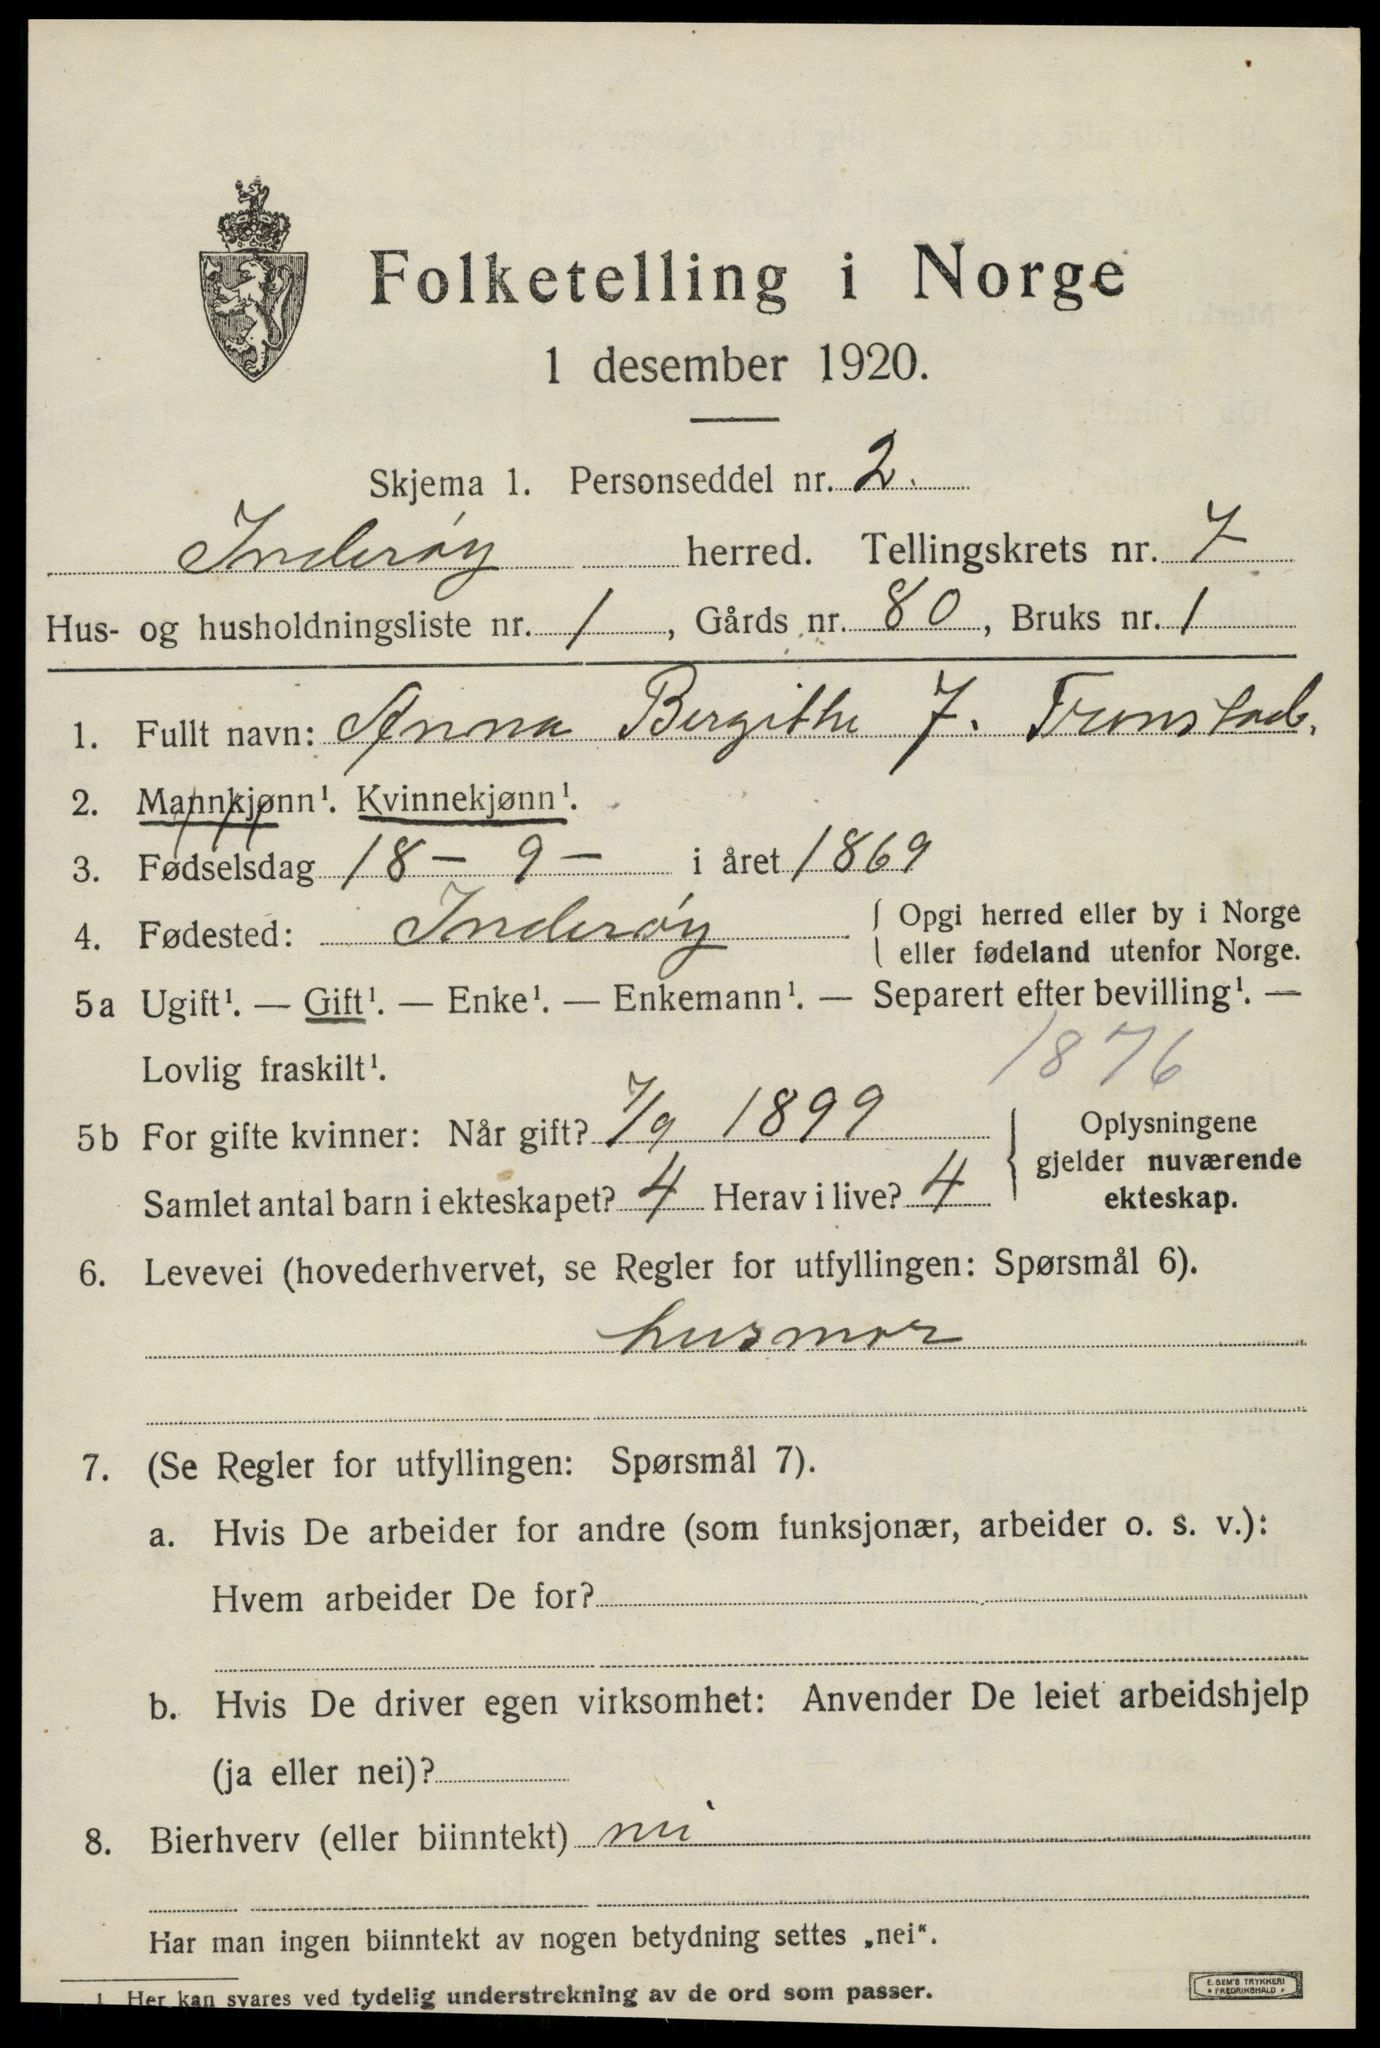 Folketelling i Norge
1 desember 1920.
Skjema 1. Personseddel nr. 2.
Inderøy herred. Tellingskrets nr. 7
Hus- og husholdningsliste nr. 1, Gårds nr. 80, Bruks nr. 1
1. Fullt navn: Anna Bergithe J. Tronstad.
2. Mannkjønn¹. Kvinnekjønn¹.
3. Fødselsdag 18 – 9 – i året 1869
4. Fødested: Inderøy { Opgi herred eller by i Norge
eller fødeland utenfor Norge.
5a Ugift¹. — Gift¹. — Enke¹. — Enkemann¹. — Separert efter bevilling¹. —
Lovlig fraskilt¹. 1876
5b For gifte kvinner: Når gift? 7/9 1899
Samlet antal barn i ekteskapet? 4 Herav i live? 4
{ Oplysningene
gjelder nuværende
ekteskap.
6. Levevei (hovederhvervet, se Regler for utfyllingen: Spørsmål 6).
husmor
7. (Se Regler for utfyllingen: Spørsmål 7).
a. Hvis De arbeider for andre (som funksjonær, arbeider o. s. v.):
Hvem arbeider De for?
b. Hvis De driver egen virksomhet: Anvender De leiet arbeidshjelp
(ja eller nei)?
8. Bierhverv (eller biinntekt) nei
Har man ingen biinntekt av nogen betydning settes „nei“.
1 Her kan svares ved tydelig understrekning av de ord som passer.
E. SEM'S TRYKKERI
* FREDRIKSHALD *